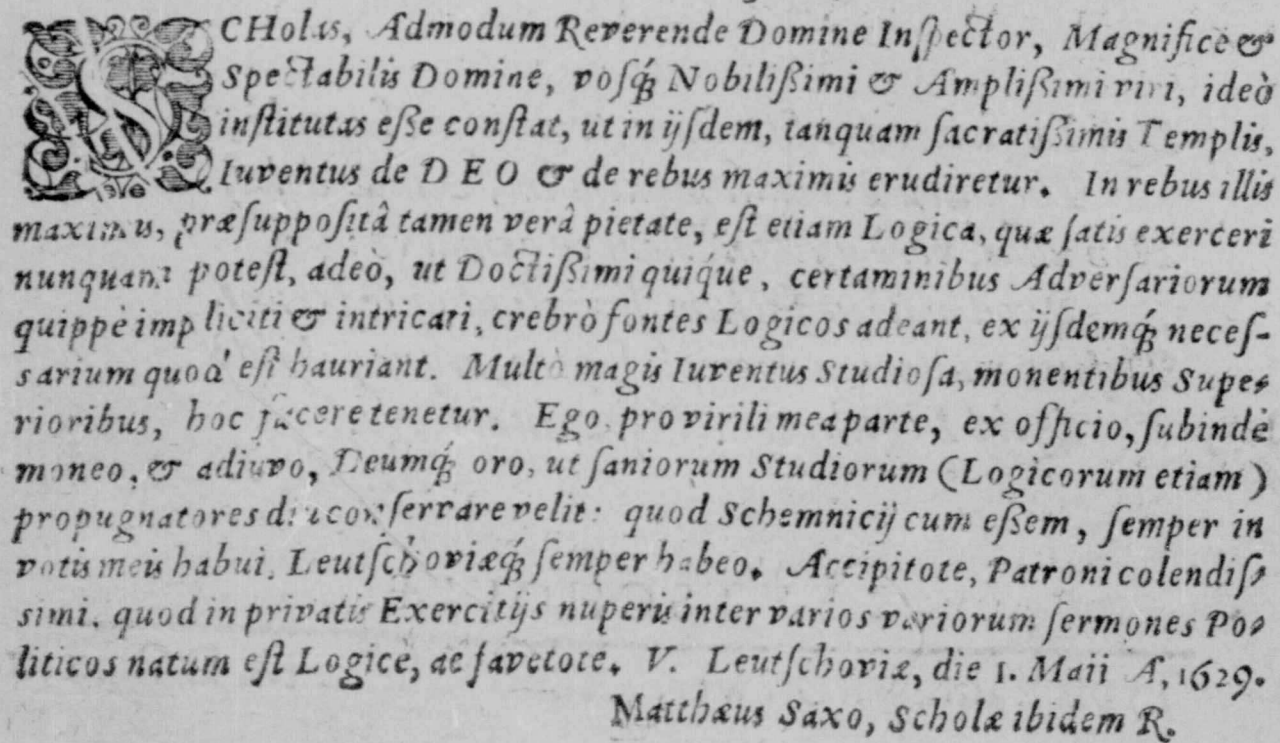 SCHolas, Admodum Reverende Domine Inſpector, Magnifice &
Spectabilis Domine, voſq́; Nobilißimi & Amplißimi viri, ideò
inſtitutas eße conſtat, ut in ijſdem, tanquam ſacratißimis Templis,
Iuventus de DEO & de rebus maximis erudiretur. In rebus illis
maximis, præſuppoſitâ tamen verâ pietate, eſt etiam Logica, quæ ſatis exerceri
nunquam poteſt, adeò, ut Doctißimi quiq́ue, certaminibus Adverſariorum
quippè impliciti & intricati, crebrò fontes Logicos adeant, ex ijſdemq́; neceſ-
sarium quod eſt hauriant. Multò magis Iuventus Studioſa, monentibus Supe-
rioribus, hoc facere tenetur. Ego pro virili mea parte, ex officio, ſubindè
moneo, & adiuvo, Deumq́; oro, ut ſaniorum Studiorum (Logicorum etiam)
propugnatores diu conſervare velit: quod Schemnicij cum eßem, ſemper in
votis meis habui, Leutſchoviæq́; ſemper habeo. Accipitote, Patroni colendiſ-
simi, quod in privatis Exercitijs nuperis inter varios variorum ſermones Po-
liticos natum eſt Logicè, ac favetote. V. Leutſchoviæ, die 1. Maii A, 1629.
Matthæus Saxo, Scholæ ibidem R.